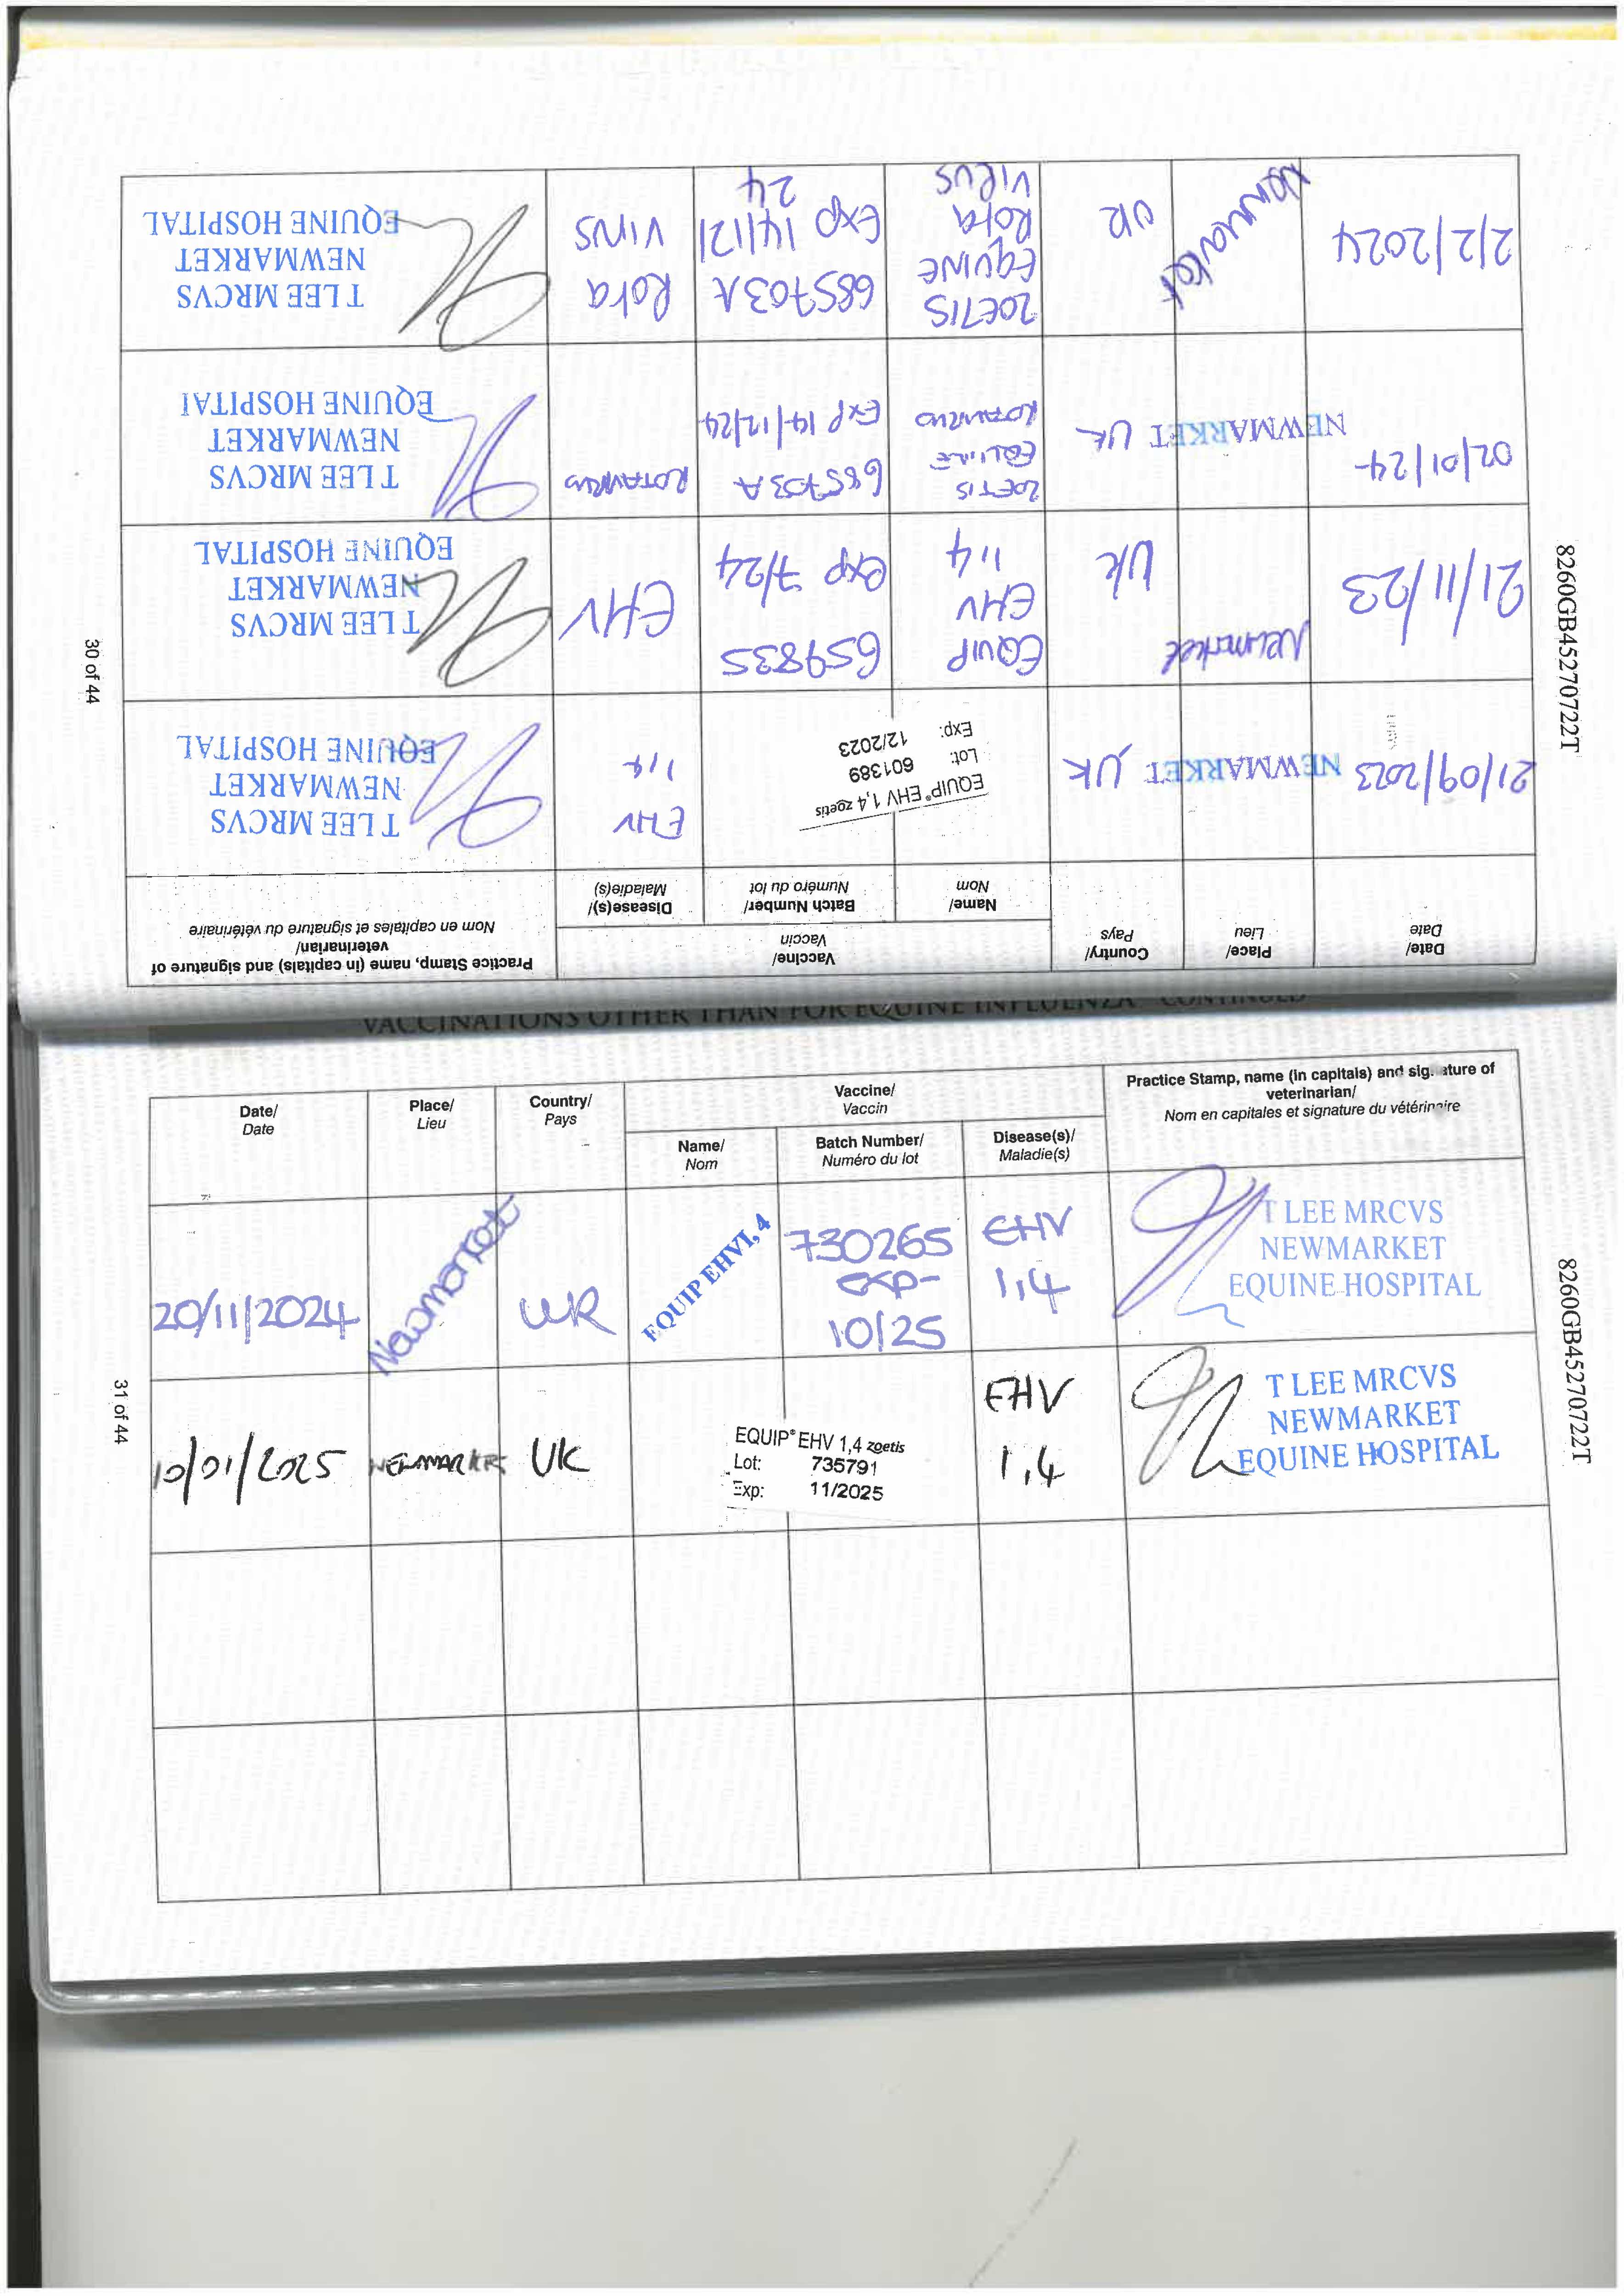 30 of 44
8260GB45270722T
Date/
Date
Place/
Lieu
Country/
Pays
Vaccine/
Vaccin
Name/
Nom
Batch Number/
Numéro du lot
Disease(s)/
Maladie(s)
Practice Stamp, name (in capitals) and signature of
veterinarian/
Nom en capitales et signature du vétérinaire
21/09/2023
NEWMARKET
UK
EQUIP® EHV 1,4 zoetis
Lot: 601389
Exp: 12/2023
EHV
1,4
T LEE MRCVS
NEWMARKET
EQUINE HOSPITAL
21/11/23
Newmarket
UK
EQUIP
EHV
1,4
659835
exp 7/24
EHV
T LEE MRCVS
NEWMARKET
EQUINE HOSPITAL
02/01/24
NEWMARKET
UK
ZOETIS
EQUINE
ROTAVIRUS
685703A
Exp 14/12/24
ROTAVIRUS
T LEE MRCVS
NEWMARKET
EQUINE HOSPITAI
2/2/2024
Newmarket
UK
ZOETIS
EQUINE
Rota
VIRUS
685703A
Exp 14/12/
24
Rota
VIRUS
T LEE MRCVS
NEWMARKET
EQUINE HOSPITAL
VACCINATIONS OTHER THAN FOR EQUINE INFLUENZA CONTINUED
Date/
Date
Place/
Lieu
Country/
Pays
Vaccine/
Vaccin
Name/
Nom
Batch Number/
Numéro du lot
Disease(s)/
Maladie(s)
Practice Stamp, name (in capitals) and signature of
veterinarian/
Nom en capitales et signature du vétérinaire
20/11/2024
Newmarket
UK
EQUIP EHV1, 4
730265
exp-
10/25
EHV
1,4
T LEE MRCVS
NEWMARKET
EQUINE HOSPITAL
10/01/2025
NEWMARKET
UK
EQUIP® EHV 1,4 zoetis
Lot: 735791
Exp: 11/2025
EHV
1,4
T LEE MRCVS
NEWMARKET
EQUINE HOSPITAL
31 of 44
8260GB45270722T